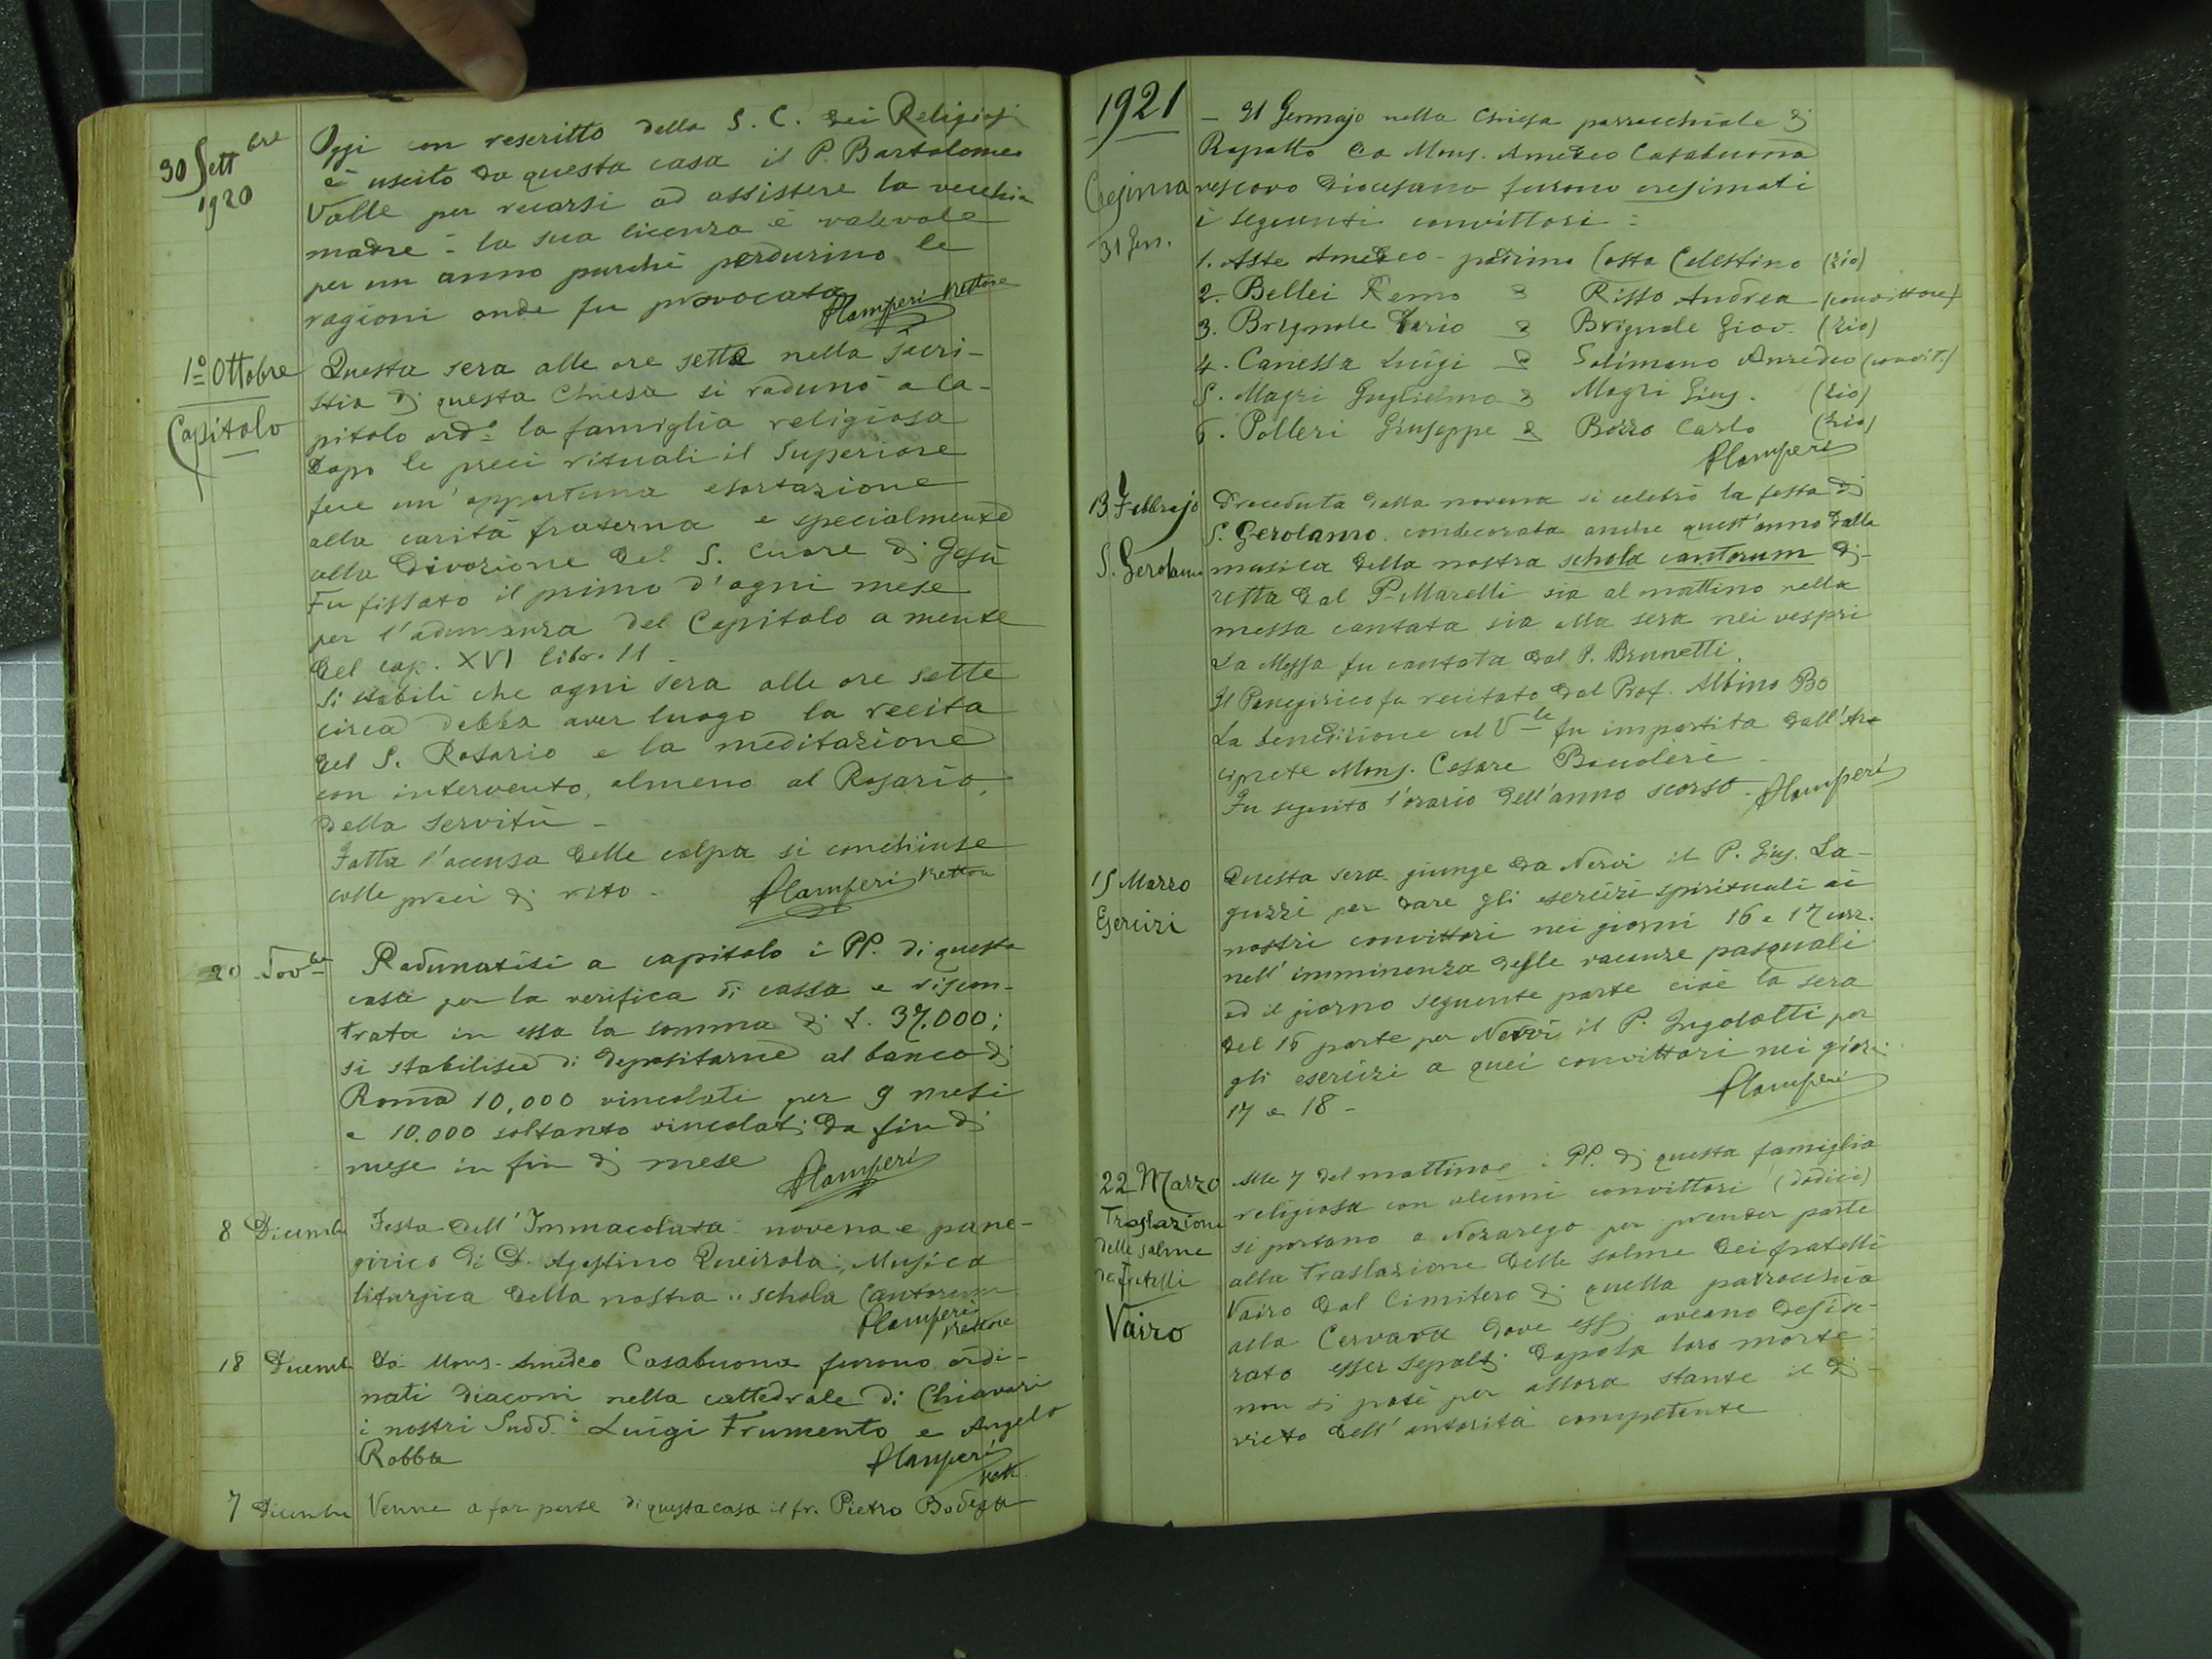 30 Sett bre
1920
Oggi con rescritto della S. C. dei Religiosi
è uscito da questa casa il P. Bartolomeo
Valle per recarsi ad assistere la vecchia
madre - la sua licenza è valevole
per un anno purchè perdurino le
ragioni onde fu provocata
Rettore
1º Ottobre
Capitolo
Questa sera alle ore sette nella sacri-
stia di questa Chiesa si radunò a ca-
pitolo ord.º la famiglia religiosa
Dopo le preci rituali il Superiore
fece un' opportuna esortazione
alla carità fraterna e specialmente
alla divozione del S. Cuore di Gesù
Fu fissato il primo d'ogni mese
per l'adunanza del Capitolo a mente
del cap. XVI libr. 11 -
Si stabilì che ogni sera alle ore sette
circa debba aver luogo la recita
del S. Rosario e la meditazione
con intervento, almeno al Rosario,
della servitù -
Fatta l'accusa delle colpe si conchiuse
colle preci di rito -
20 Nov bre
Radunatisi a capitolo i PP. di questa
casa per la verifica di cassa e riscon-
trata in essa la somma di £. 37.000;
si stabilisce di depositarne al banco di
Roma 10,000 vincolati per 9 mesi
e 10.000 soltanto vincolati da fin di
mese in fin di mese
8 Dicembre
Festa dell' Immacolata - novena e pane-
girico di D. Agostino Queirolo; Musica
liturgica della nostra "schola cantorum
Rettore
18 Dicemb
Da Mons. Amedeo Casabuona furono ordi-
nati diaconi nella cattedrale di Chiavari
i nostri Sudd.i Luigi Frumento e Angelo
Robba
Rett.
7 Dicembre
Venne a far parte di questa casa il fr. Pietro Bodega
1921
Cresima
31 Gen.
- 31 Gennajo nella Chiesa parrocchiale di
Rapallo da Mons. Amedeo Casabuona
vescovo diocesano furono cresimati
i seguenti convittori:
1. Aste Amedeo - padrino Costa Celestino (zio)
2. Bellei Remo " Risso Andrea (convittore)
3. Brignole Dario " Brignole Giov. (zio)
4. Canessa Luigi " Solimano Amedeo (convit.)
5. Magri Guglielmo " Magri Gius. (zio)
6. Polleri Giuseppe " Bozzo Carlo (zio)
13 Febbrajo
S. Gerolamo
Preceduta dalla novena si celebrò la festa di
S. Gerolamo. condecorata anche quest'anno dalla
musica della nostra schola cantorum di-
retta dal P. Marelli sia al mattino nella
messa cantata sia alla sera nei vespri
La Messa fu cantata dal P. Brunetti.
Il Panegirico fu recitato dal Prof. Albino Bo
La benedizione col V le fu impartita dall'Ar
ciprete Mons. Cesare
Fu seguito l'orario dell'anno scorso -
15 Marzo
Esercizi
Questa sera giunge da Nervi il P. Gius. La-
guzzi per dare gli esercizi spirituali ai
nostri convittori nei giorni 16 e 17 corr.
nell' imminenza delle vacanze pasquali
ed il giorno seguente parte cioè la sera
del 16 parte per Nervi il P. Ingolotti per
gli esercizi a quei convittori nei giorni
17 e 18 -
22 Marzo
Traslazione
delle salme
dei fratelli
Vairo
Alle 7 del mattino i PP. di questa famiglia
religiosa con alcuni convittori (dodici)
si portano a Nozarego per prender parte
alla traslazione delle salme dei fratelli
Vairo dal Cimitero di quella parrocchia
alla Cervara dove essi aveano deside-
rato esser sepolti dopo la loro morte:
non si potè per allora stante il di-
vieto dell' autorità competente